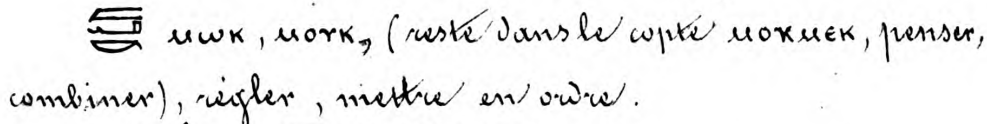 ⲙⲱⲕ, ⲙⲟⲩⲕ, (resté dans le copte ⲙⲟⲕⲙⲉⲕ, penser,
combiner), régler, mettre en ordre.